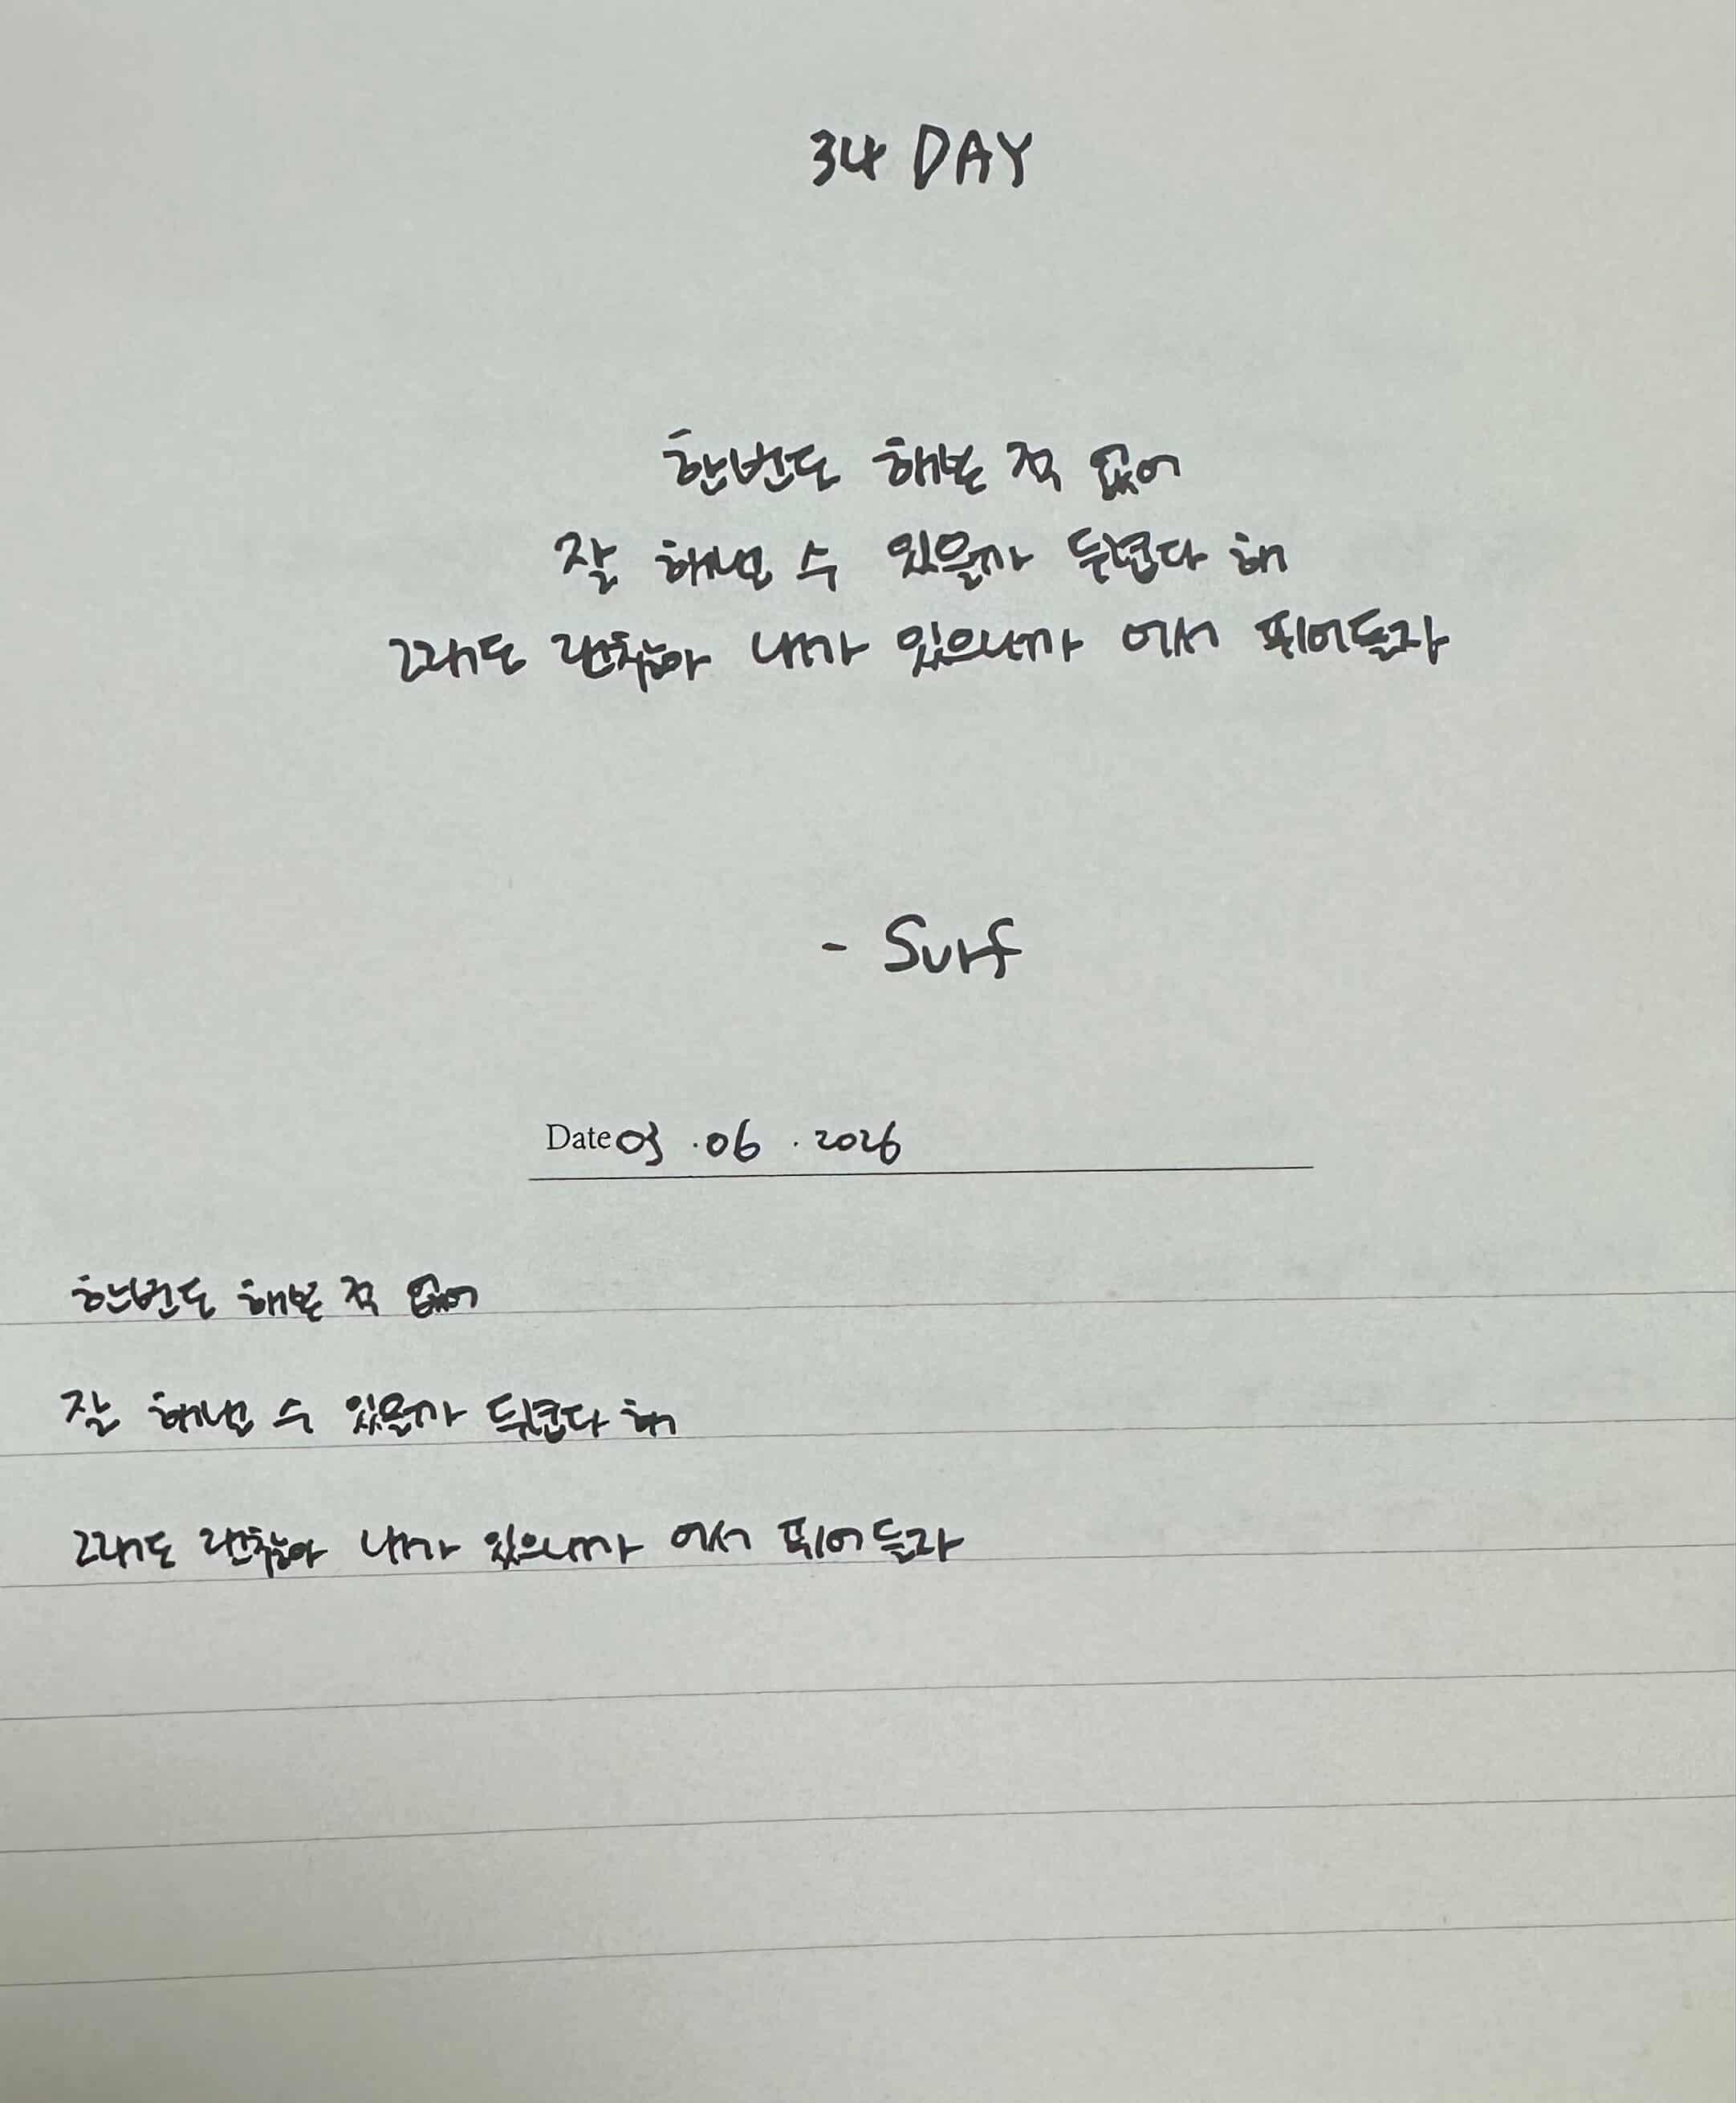 34 DAY
한번도 해본 적 없어
잘 해낼 수 있을까 두렵다 해
그래도 괜찮아 내가 있으니까 어서 뛰어들자
- Surf
Date 03 . 06 . 2026
한번도 해본 적 없어
잘 해낼 수 있을까 두렵다 해
그래도 괜찮아 내가 있으니까 어서 뛰어들자